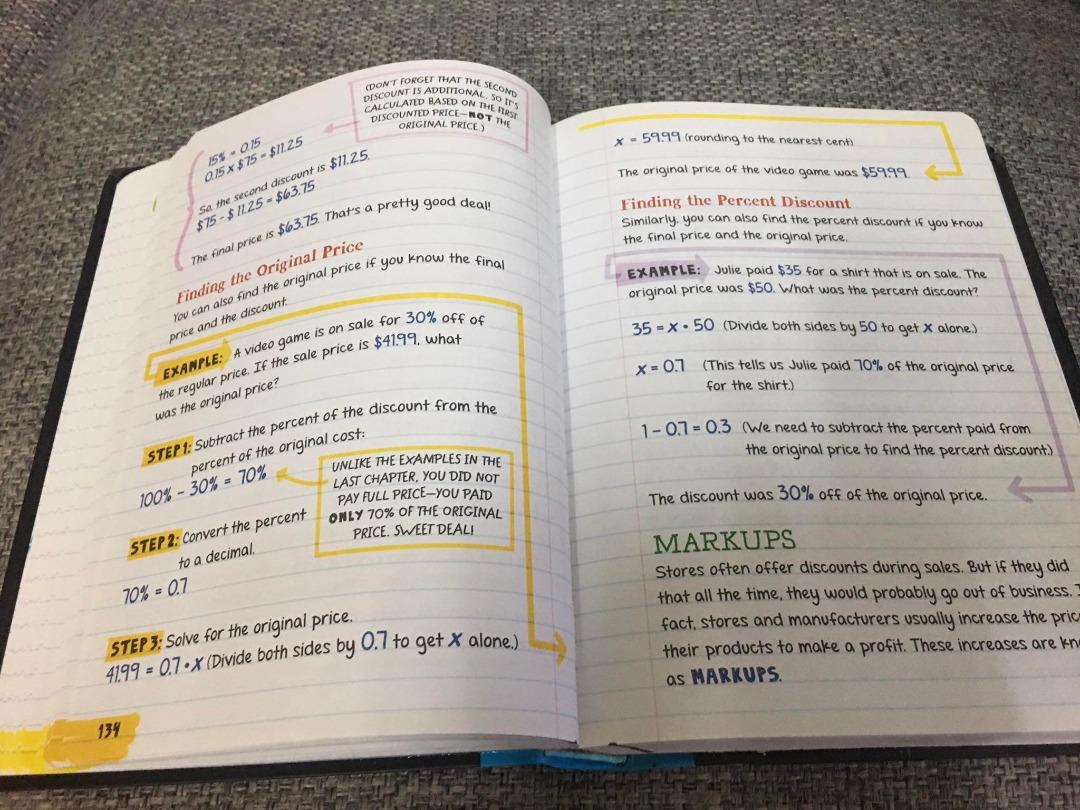 (DON'T FORGET THAT THE SECOND
DISCOUNT IS ADDITIONAL, SO IT'S
CALCULATED BASED ON THE FIRST
DISCOUNTED PRICE—NOT THE
ORIGINAL PRICE.)
15% = 0.15
0.15 x $75 = $11.25
So, the second discount is $11.25.
$75 - $11.25 = $63.75
The final price is $63.75. That's a pretty good deal!
Finding the Original Price
You can also find the original price if you know the final
price and the discount.
EXAMPLE: A video game is on sale for 30% off of
the regular price. If the sale price is $41.99, what
was the original price?
STEP 1: Subtract the percent of the discount from the
percent of the original cost:
100% - 30% = 70%
UNLIKE THE EXAMPLES IN THE
LAST CHAPTER, YOU DID NOT
PAY FULL PRICE—YOU PAID
ONLY 70% OF THE ORIGINAL
PRICE. SWEET DEAL!
STEP 2: Convert the percent
to a decimal.
70% = 0.7
STEP 3: Solve for the original price.
41.99 = 0.7 • x (Divide both sides by 0.7 to get x alone.)
134
x = 59.99 (rounding to the nearest cent)
The original price of the video game was $59.99.
Finding the Percent Discount
Similarly, you can also find the percent discount if you know
the final price and the original price.
EXAMPLE: Julie paid $35 for a shirt that is on sale. The
original price was $50. What was the percent discount?
35 = x • 50 (Divide both sides by 50 to get x alone.)
x = 0.7 (This tells us Julie paid 70% of the original price
for the shirt.)
1 - 0.7 = 0.3 (We need to subtract the percent paid from
the original price to find the percent discount.)
The discount was 30% off of the original price.
MARKUPS
Stores often offer discounts during sales. But if they did
that all the time, they would probably go out of business.
fact, stores and manufacturers usually increase the
their products to make a profit. These increases are
as MARKUPS.